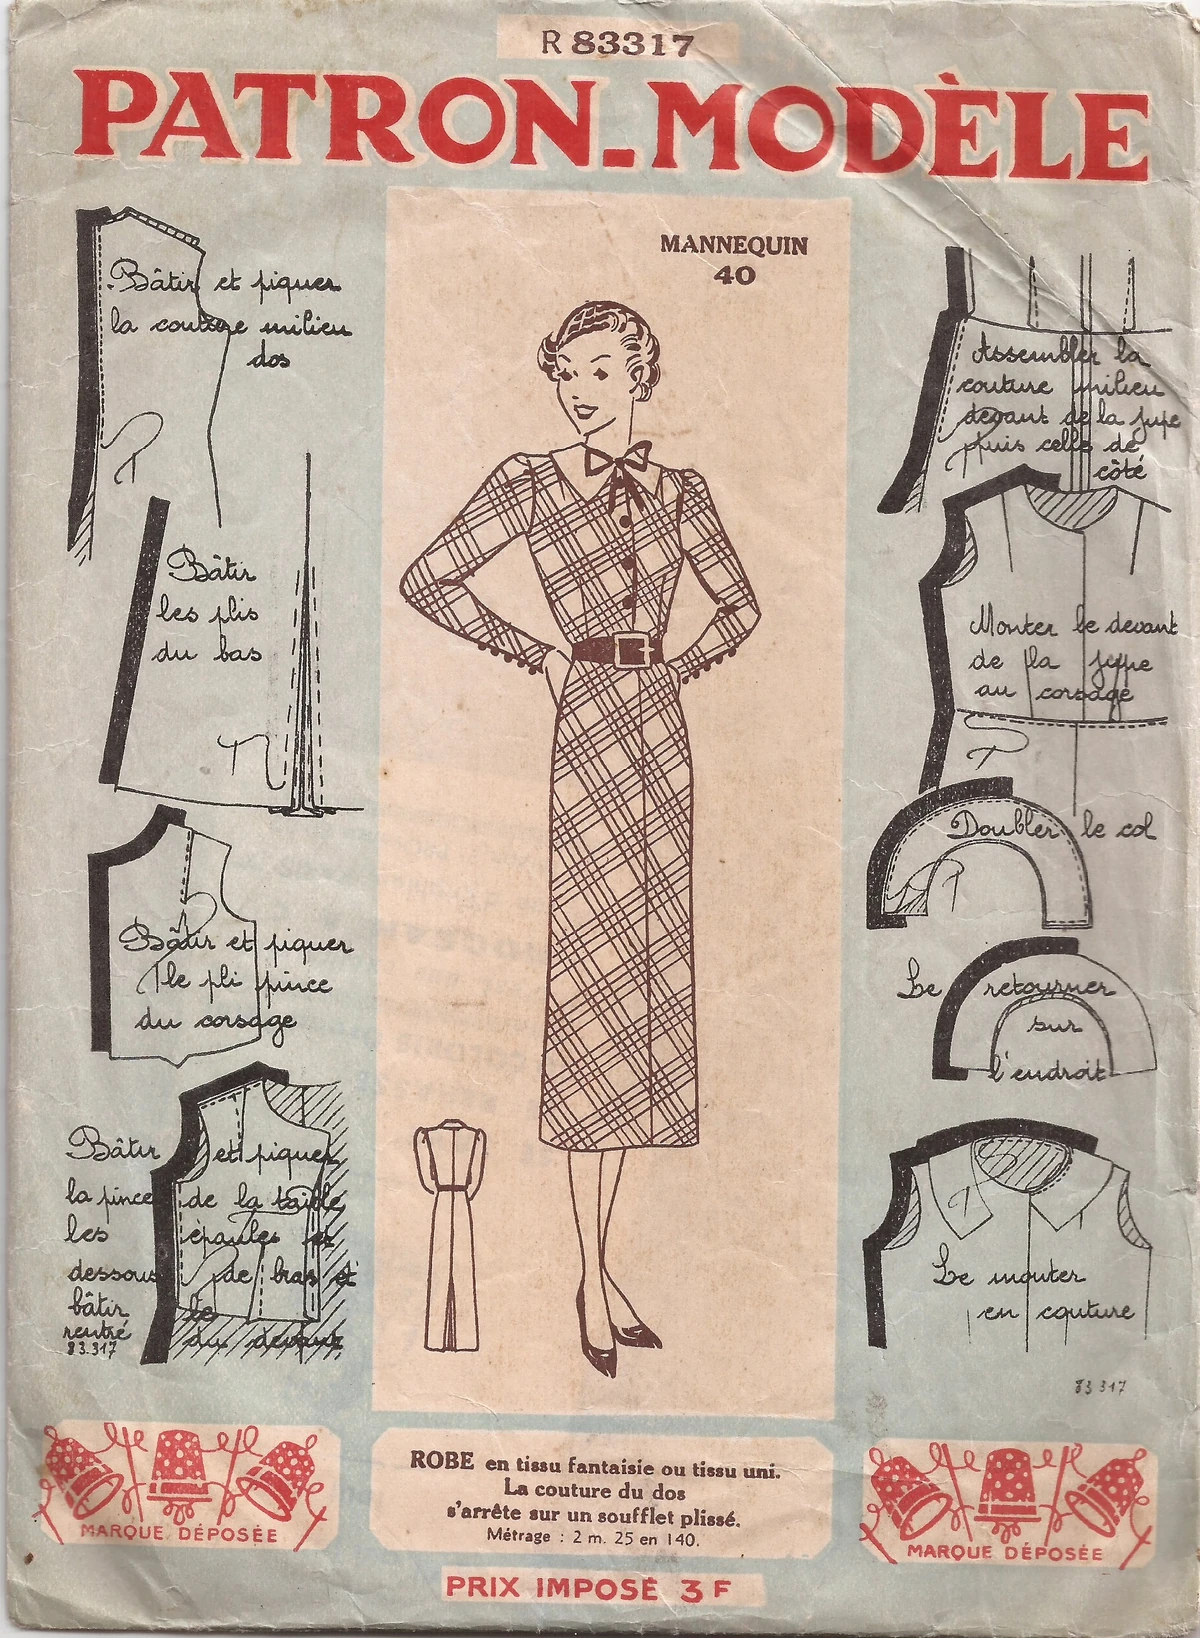 R 83317
PATRON-MODÈLE
MANNEQUIN
40
Bâtir et piquer
la couture milieu
dos
Bâtir
les plis
du bas
Bâtir et piquer
le pli pince
du corsage
Bâtir et piquer
la pince de la taille,
les épaules et
dessous de bras et
bâtir le
rentré du devant
83.317
Assembler la
couture milieu
devant de la jupe
puis celle de
côté
Monter le devant
de la jupe
au corsage
Doubler le col
Le retourner
sur
l'endroit
Le monter
en couture
83 317
MARQUE DÉPOSÉE
ROBE en tissu fantaisie ou tissu uni.
La couture du dos
s'arrête sur un soufflet plissé.
Métrage : 2 m. 25 en 140.
MARQUE DÉPOSÉE
PRIX IMPOSÉ 3 F